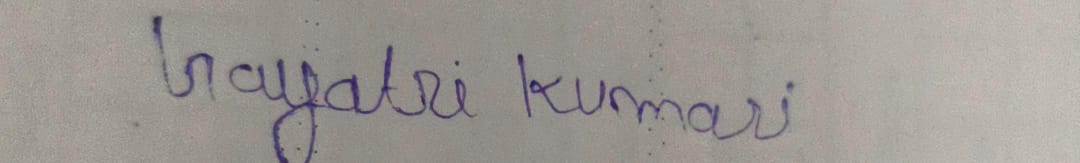 Gayatri kumari